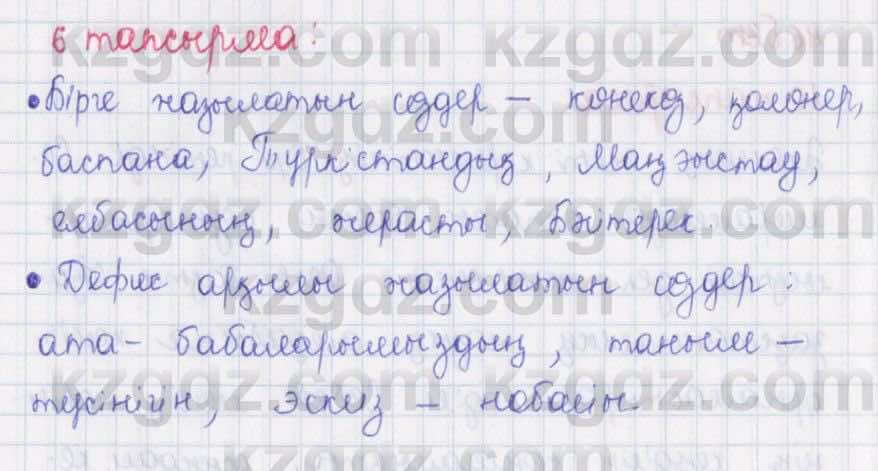 6 тапсырма:
• Бірге жазылатын сөздер – көнекөз, қолөнер,
баспана, Түркістандық, Маңғыстау,
елбасының, жерасты, Бәйтерек.
• Дефис арқылы жазылатын сөздер:
ата- бабаларымыздың, таным –
түсінігін, эскиз – нобайы.
kzgdz.com